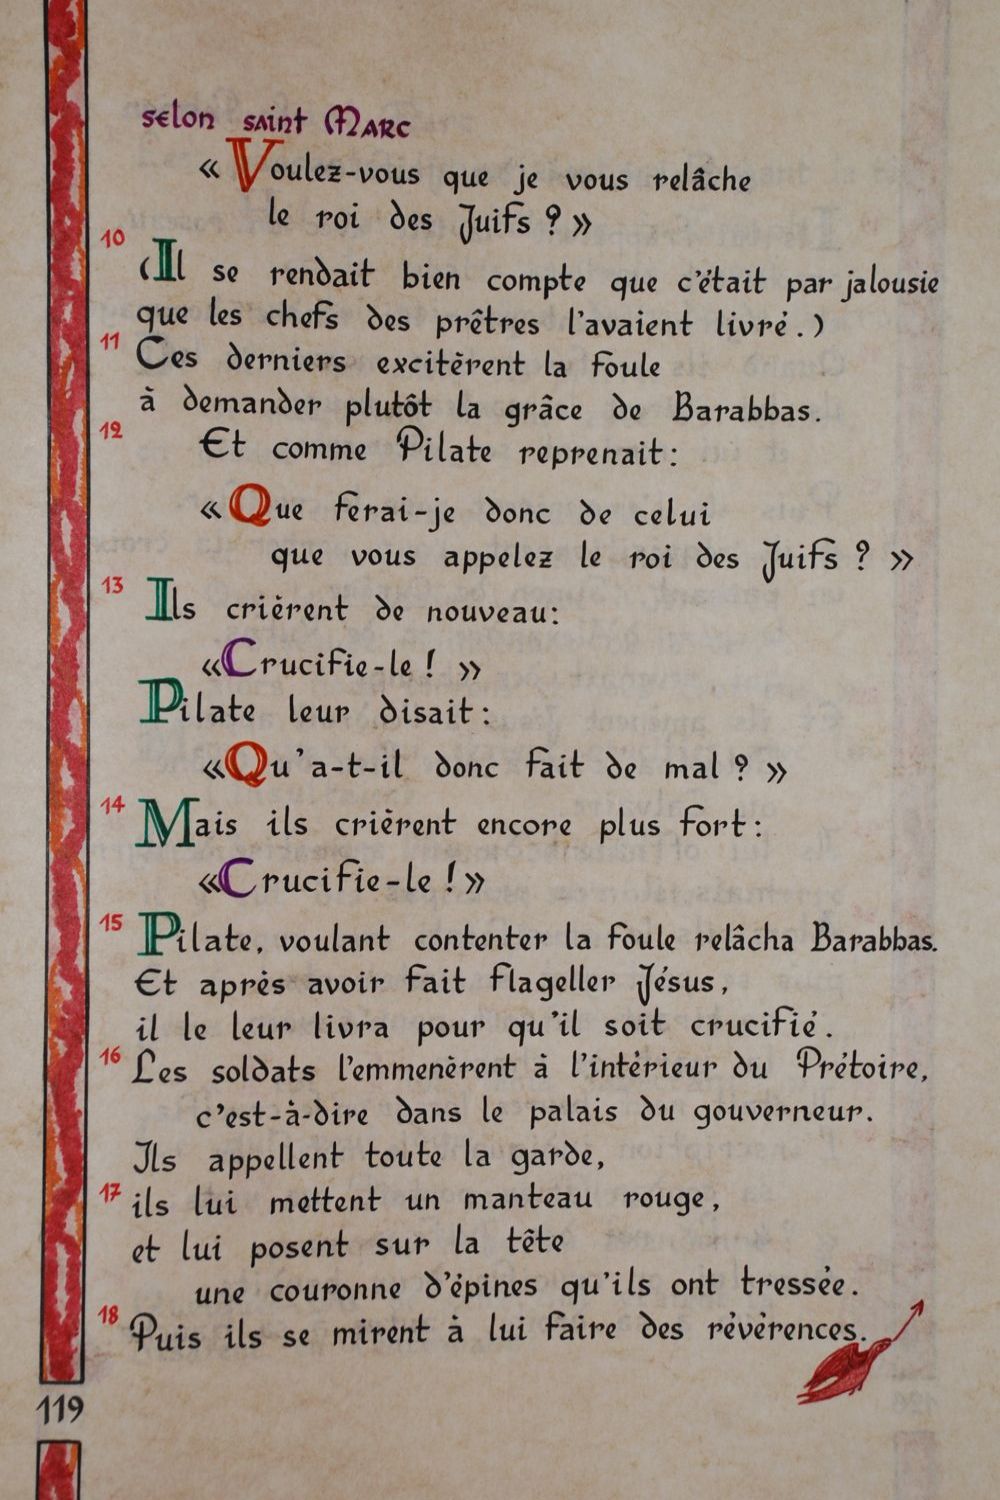 selon saint Marc
« Voulez-vous que je vous relâche
le roi des Juifs ? »
10
(Il se rendait bien compte que c'était par jalousie
que les chefs des prêtres l'avaient livré.)
11 Ces derniers excitèrent la foule
à demander plutôt la grâce de Barabbas.
12 Et comme Pilate reprenait :
« Que ferai-je donc de celui
que vous appelez le roi des Juifs ? »
13 Ils crièrent de nouveau :
« Crucifie-le ! »
Pilate leur disait :
« Qu'a-t-il donc fait de mal ? »
14 Mais ils crièrent encore plus fort :
« Crucifie-le ! »
15 Pilate, voulant contenter la foule relâcha Barabbas.
Et après avoir fait flageller Jésus,
il le leur livra pour qu'il soit crucifié.
16 Les soldats l'emmenèrent à l'intérieur du Prétoire,
c'est-à-dire dans le palais du gouverneur.
Ils appellent toute la garde,
17 ils lui mettent un manteau rouge,
et lui posent sur la tête
une couronne d'épines qu'ils ont tressée.
18 Puis ils se mirent à lui faire des révérences.
119